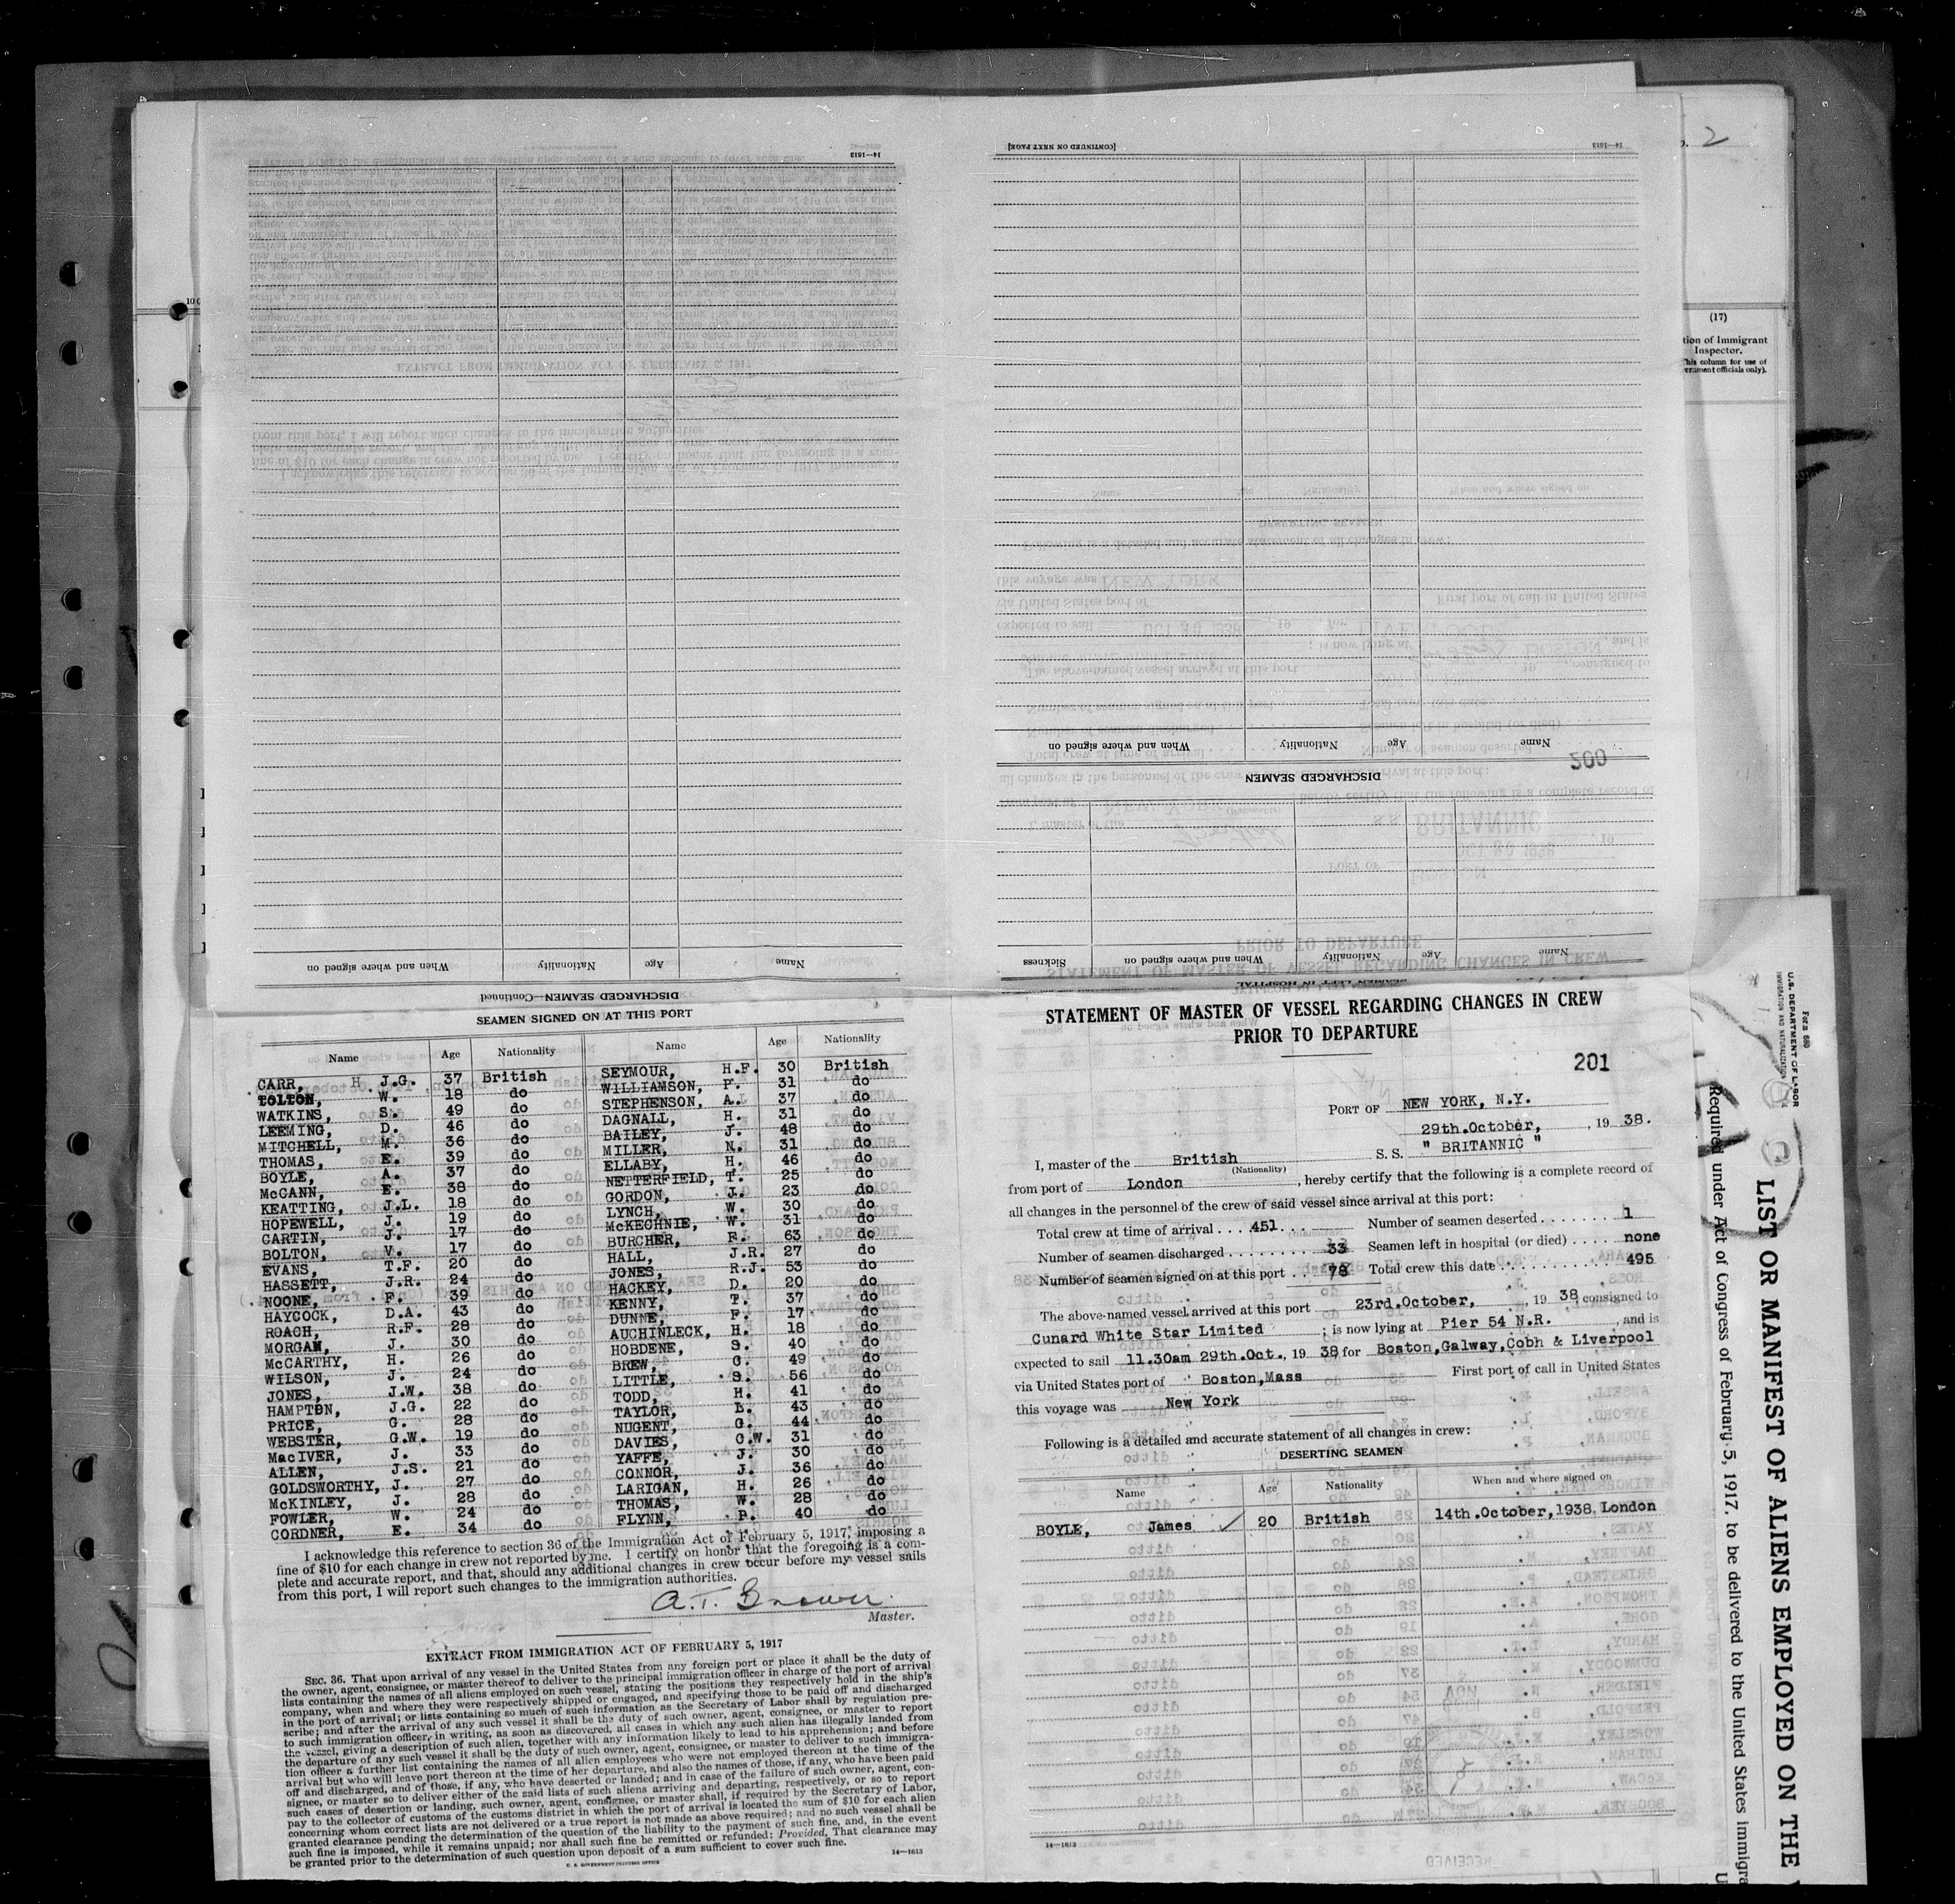 2
(17)
tion of Immigrant
Inspector.
This column for use of
vernment officials only).
14—1613
[CONTINUED ON NEXT PAGE]
14—1613
When and where signed on
Nationality
Age
Name
DISCHARGED SEAMEN
200
Sickness
When and where signed on
Nationality
Age
Name
When and where signed on
Nationality
Age
Name
DISCHARGED SEAMEN—Continued
SEAMEN SIGNED ON AT THIS PORT
Name Age Nationality Name Age Nationality
CARR, H J.G. 37 British SEYMOUR, H.F. 30 British
TOLTON, W. 18 do WILLIAMSON, P. 31 do
WATKINS, S. 49 do STEPHENSON, A. 37 do
LEEMING, D. 46 do DAGNALL, H. 31 do
MITCHELL, M. 36 do BAILEY, J. 48 do
THOMAS, E. 39 do MILLER, N. 31 do
BOYLE, A. 37 do ELLABY, H. 46 do
McCANN, E. 38 do NETTERFIELD, T. 25 do
KEATTING, J.L. 18 do GORDON, J. 23 do
HOPEWELL, J. 19 do LYNCH, W. 30 do
CARTIN, J. 17 do McKECHNIE, W. 31 do
BOLTON, V. 17 do BURCHER, F. 63 do
EVANS, T.F. 20 do HALL, J.R. 27 do
HASSETT, J.R. 24 do JONES, R.J. 53 do
NOONE, F. 39 do HACKEY, D. 20 do
HAYCOCK, D.A. 43 do KENNY, T. 37 do
ROACH, R.F. 28 do DUNNE, P. 17 do
MORGAN, J. 30 do AUCHINLECK, H. 18 do
McCARTHY, H. 26 do HOBDENE, S. 40 do
WILSON, J. 24 do BREW, G. 49 do
JONES, J.W. 38 do LITTLE, S. 56 do
HAMPTON, J.G. 22 do TODD, H. 41 do
PRICE, G. 28 do TAYLOR, L. 43 do
WEBSTER, G.W. 19 do NUGENT, G. 44 do
MacIVER, J. 33 do DAVIES, C.W. 31 do
ALLEN, J.S. 21 do YAFFE, J. 30 do
GOLDSWORTHY, J. 27 do CONNOR, J. 36 do
McKINLEY, J. 28 do LARIGAN, H. 26 do
FOWLER, W. 24 do THOMAS, W. 28 do
CORDNER, E. 34 do FLYNN, P. 40 do
I acknowledge this reference to section 36 of the Immigration Act of February 5, 1917, imposing a
fine of $10 for each change in crew not reported by me. I certify on honor that the foregoing is a com-
plete and accurate report, and that, should any additional changes in crew occur before my vessel sails
from this port, I will report such changes to the immigration authorities.
A.T. Brown
Master.
EXTRACT FROM IMMIGRATION ACT OF FEBRUARY 5, 1917
SEC. 36. That upon arrival of any vessel in the United States from any foreign port or place it shall be the duty of
the owner, agent, consignee, or master thereof to deliver to the principal immigration officer in charge of the port of arrival
lists containing the names of all aliens employed on such vessel, stating the positions they respectively hold in the ship's
company, when and where they were respectively shipped or engaged, and specifying those to be paid off and discharged
in the port of arrival; or lists containing so much of such information as the Secretary of Labor shall by regulation pre-
scribe; and after the arrival of any such vessel it shall be the duty of such owner, agent, consignee, or master to report
to such immigration officer, in writing, as soon as discovered, all cases in which any such alien has illegally landed from
the vessel, giving a description of such alien, together with any information likely to lead to his apprehension; and before
the departure of any such vessel it shall be the duty of such owner, agent, consignee, or master to deliver to such immigra-
tion officer a further list containing the names of all alien employees who were not employed thereon at the time of the
arrival but who will leave port thereon at the time of her departure, and also the names of those, if any, who have been paid
off and discharged, and of those, if any, who have deserted or landed; and in case of the failure of such owner, agent, con-
signee, or master so to deliver either of the said lists of such aliens arriving and departing, respectively, or so to report
such cases of desertion or landing, such owner, agent, consignee, or master shall, if required by the Secretary of Labor,
pay to the collector of customs of the customs district in which the port of arrival is located the sum of $10 for each alien
concerning whom correct lists are not delivered or a true report is not made as above required; and no such vessel shall be
granted clearance pending the determination of the question of the liability to the payment of such fine, and, in the event
such fine is imposed, while it remains unpaid; nor shall such fine be remitted or refunded: Provided, That clearance may
be granted prior to the determination of such question upon deposit of a sum sufficient to cover such fine.
U. S. GOVERNMENT PRINTING OFFICE
14—1613
STATEMENT OF MASTER OF VESSEL REGARDING CHANGES IN CREW
PRIOR TO DEPARTURE
201
PORT OF NEW YORK, N.Y.
29th.October, , 19 38.
I, master of the British S. S. " BRITANNIC "
(Nationality)
from port of London , hereby certify that the following is a complete record of
all changes in the personnel of the crew of said vessel since arrival at this port:
Total crew at time of arrival . . . 451. . . Number of seamen deserted . . . . . . . . 1
Number of seamen discharged . . . . . . . . . 33 Seamen left in hospital (or died) . . . . . none
Number of seamen signed on at this port . . . 78 Total crew this date . . . . . . . . . . . 495
The above-named vessel arrived at this port 23rd.October, , 19 38, consigned to
Cunard White Star Limited ; is now lying at Pier 54 N.R. , and is
expected to sail 11.30am 29th.Oct., 19 38 for Boston,Galway,Cobh & Liverpool
via United States port of Boston,Mass First port of call in United States
this voyage was New York
Following is a detailed and accurate statement of all changes in crew:
DESERTING SEAMEN
Name Age Nationality When and where signed on
BOYLE, James ✓ 20 British 14th.October,1938. London
14—1613
Form 680
U.S. DEPARTMENT OF LABOR
IMMIGRATION AND NATURALIZATION
LIST OR MANIFEST OF ALIENS EMPLOYED ON THE
Required under Act of Congress of February 5, 1917, to be delivered to the United States immigra